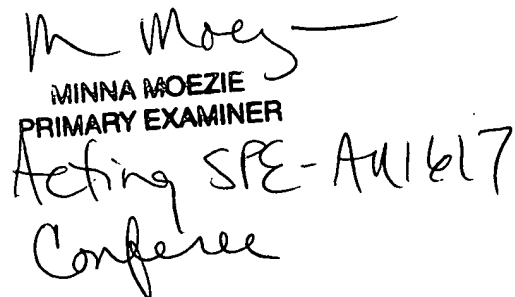 M Moez
MINNA MOEZIE
PRIMARY EXAMINER
Acting SPE-AU1617
Conferee